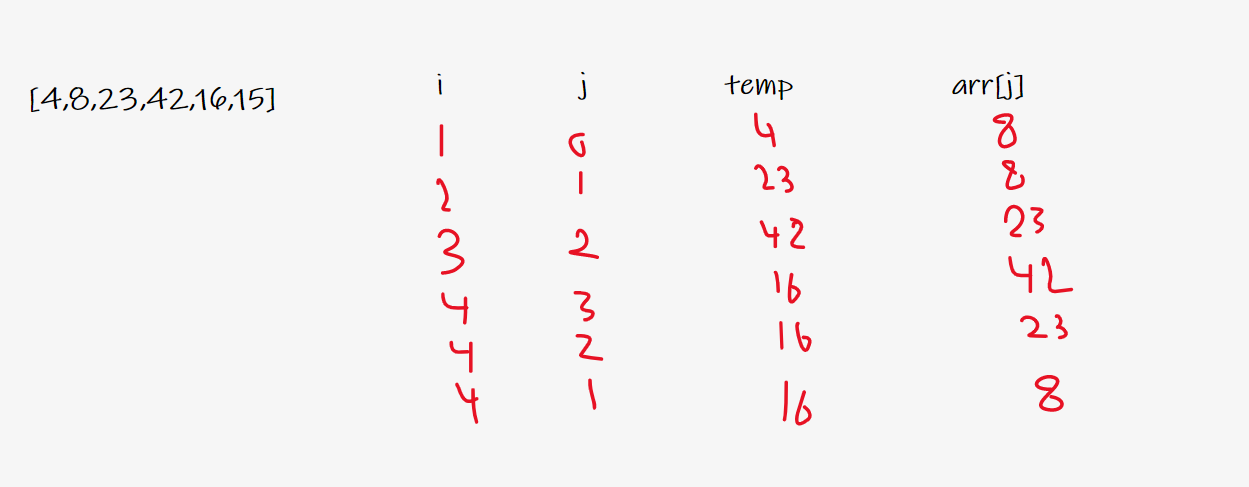 [4,8,23,42,16,15] i j temp arr[j]
1 0 4 8
2 1 23 8
3 2 42 23
4 3 16 42
4 2 16 23
4 1 16 8